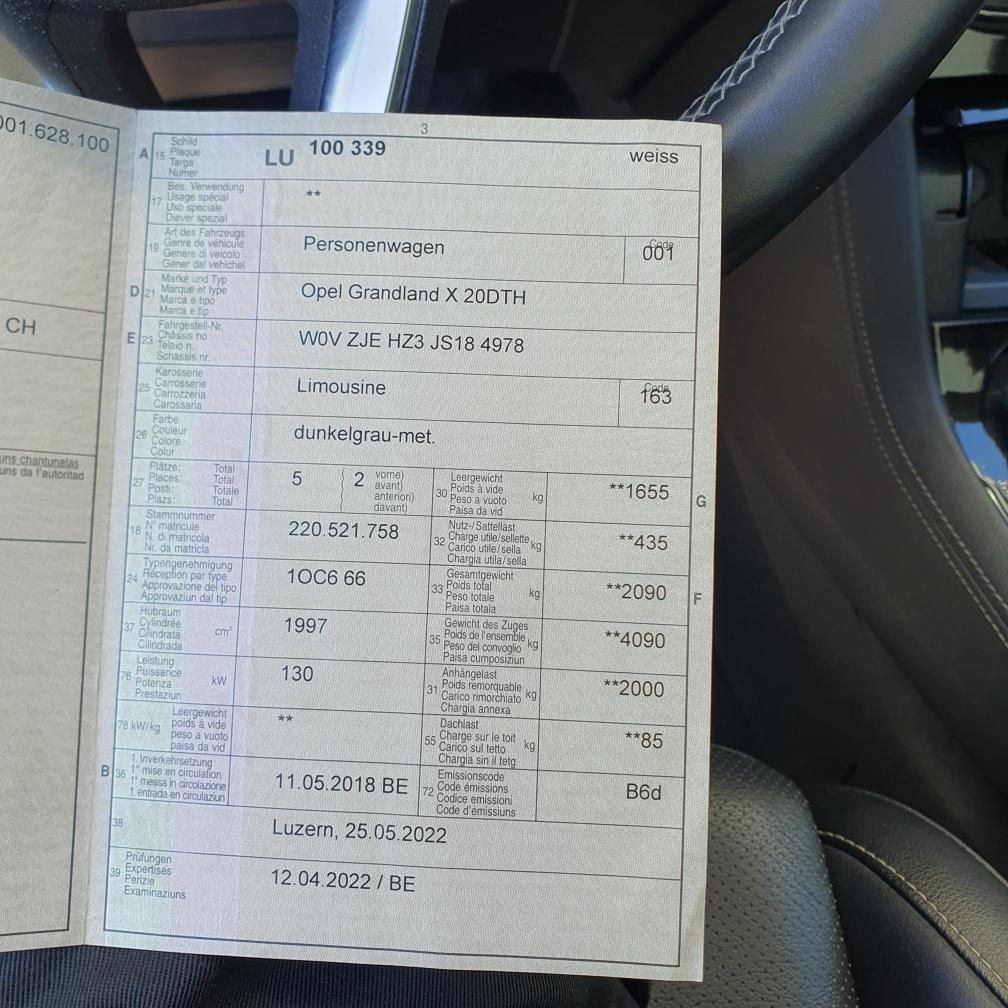 001.628.100
CH
uns chantunalas
uns da l'autoritad
3
A 15 Schild
Plaque
Targa
Numer
LU 100 339 weiss
17 Bes. Verwendung
Usage spécial
Uso speciale
Diever spezial
**
19 Art des Fahrzeugs
Genre de véhicule
Genere di veicolo
Gener dal vehichel
Personenwagen
Code
001
D 21 Marke und Typ
Marque et type
Marca e tipo
Marca e tip
Opel Grandland X 20DTH
E 23 Fahrgestell-Nr.
Châssis no
Telaio n.
Schassis nr.
W0V ZJE HZ3 JS18 4978
25 Karosserie
Carrosserie
Carrozzeria
Carossaria
Limousine
Code
163
26 Farbe
Couleur
Colore
Colur
dunkelgrau-met.
27 Plätze: Total
Places: Total
Posti: Totale
Plazs: Total
5 ( 2 vorne)
avant)
anteriori)
davant)
30 Leergewicht
Poids à vide
Peso a vuoto
Paisa da vid
kg
**1655
G
18 Stammnummer
N° matricule
N. di matricola
Nr. da matricla
220.521.758
32 Nutz-/Sattellast
Charge utile/sellette
Carico utile/sella
Chargia utila/sella
kg
**435
24 Typengenehmigung
Réception par type
Approvazione del tipo
Approvaziun dal tip
1OC6 66
33 Gesamtgewicht
Poids total
Peso totale
Paisa totala
kg
**2090
F
37 Hubraum
Cylindrée
Cilindrata
Cilindrada
cm³
1997
35 Gewicht des Zuges
Poids de l'ensemble
Peso del convoglio
Paisa cumposiziun
kg
**4090
76 Leistung
Puissance
Potenza
Prestaziun
kW
130
31 Anhängelast
Poids remorquable
Carico rimorchiato
Chargia annexa
kg
**2000
78 kW/kg Leergewicht
poids à vide
peso a vuoto
paisa da vid
**
55 Dachlast
Charge sur le toit
Carico sul tetto
Chargia sin il tetg
kg
**85
B 36 1. Inverkehrsetzung
1re mise en circulation
1a messa in circolazione
1. entrada en circulaziun
11.05.2018 BE
72 Emissionscode
Code émissions
Codice emissioni
Code d'emissiuns
B6d
38
Luzern, 25.05.2022
39 Prüfungen
Expertises
Perizie
Examinaziuns
12.04.2022 / BE